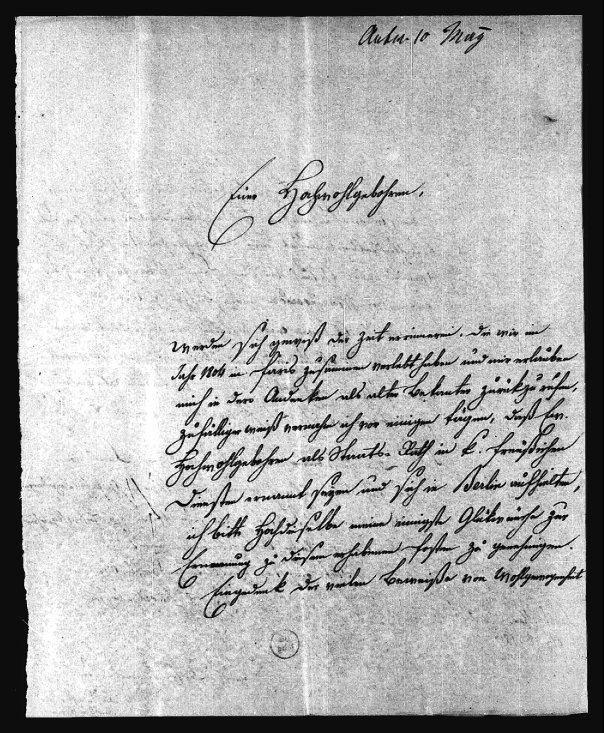 Antw. 10 May
Euer Hochwohlgebohren,
werden sich gewiß der Zeit erinneren, die wir im
Jahr 1804 in Paris zusammen verlebt haben und mir erlauben
mich in dero Andenken als alter Bekanter zurück zu rufen,
zufälliger weiß vernahm ich vor einigen tägen, daß Er.
Hochwohlgebohren als Staats-Rath in k. Preußischen
Diensten ernannt seyen und sich in Berlin aufhalten,
ich bitte Hochdieselbe meine innigste Glükwünsche zur
Ernennung zu diesem erhabenen Posten zu genehmigen.
Eingedenk der vielen Beweiße von Wohlgewogenheit